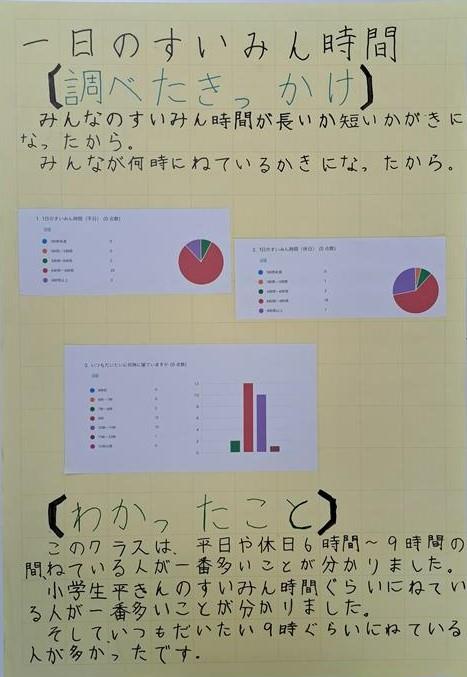 一日のすいみん時間
【調べたきっかけ】
みんなのすいみん時間が長いか短いかがきに
なったから。
みんなが何時にねているかきになったから。
1. 1日のすいみん時間（平日） (0 点数)
2. 1日のすいみん時間（休日） (0 点数)
3. いつもだいたいに何時に寝ていますか (0 点数)
【わかったこと】
このクラスは、平日や休日6時間～9時間の
間、ねている人が一番多いことが分かりました。
小学生平きんのすいみん時間ぐらいにねてい
る人が一番多いことが分かりました。
そして、いつもだいたい9時ぐらいにねている
人が多かったです。